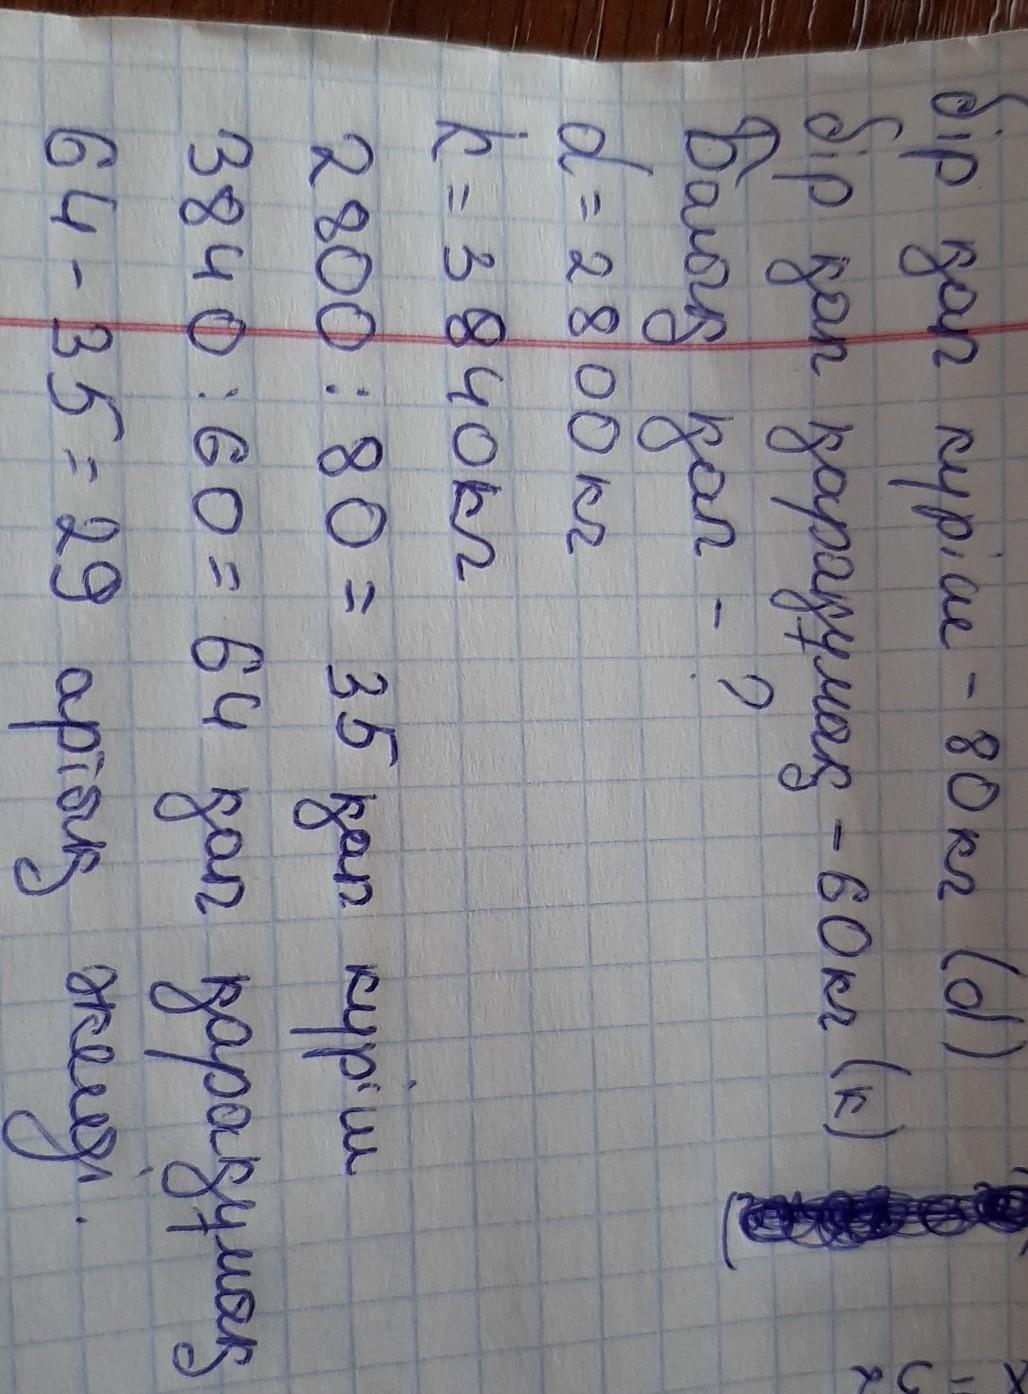 бір қап күріш - 80кг (d)
бір қап қарақұмық - 60кг (к)
Балық қап - ?
d = 2800кг
k = 3840кг
2800 : 80 = 35 қап күріш
3840 : 60 = 64 қап қарақұмық
64 - 35 = 29 артық жеді.